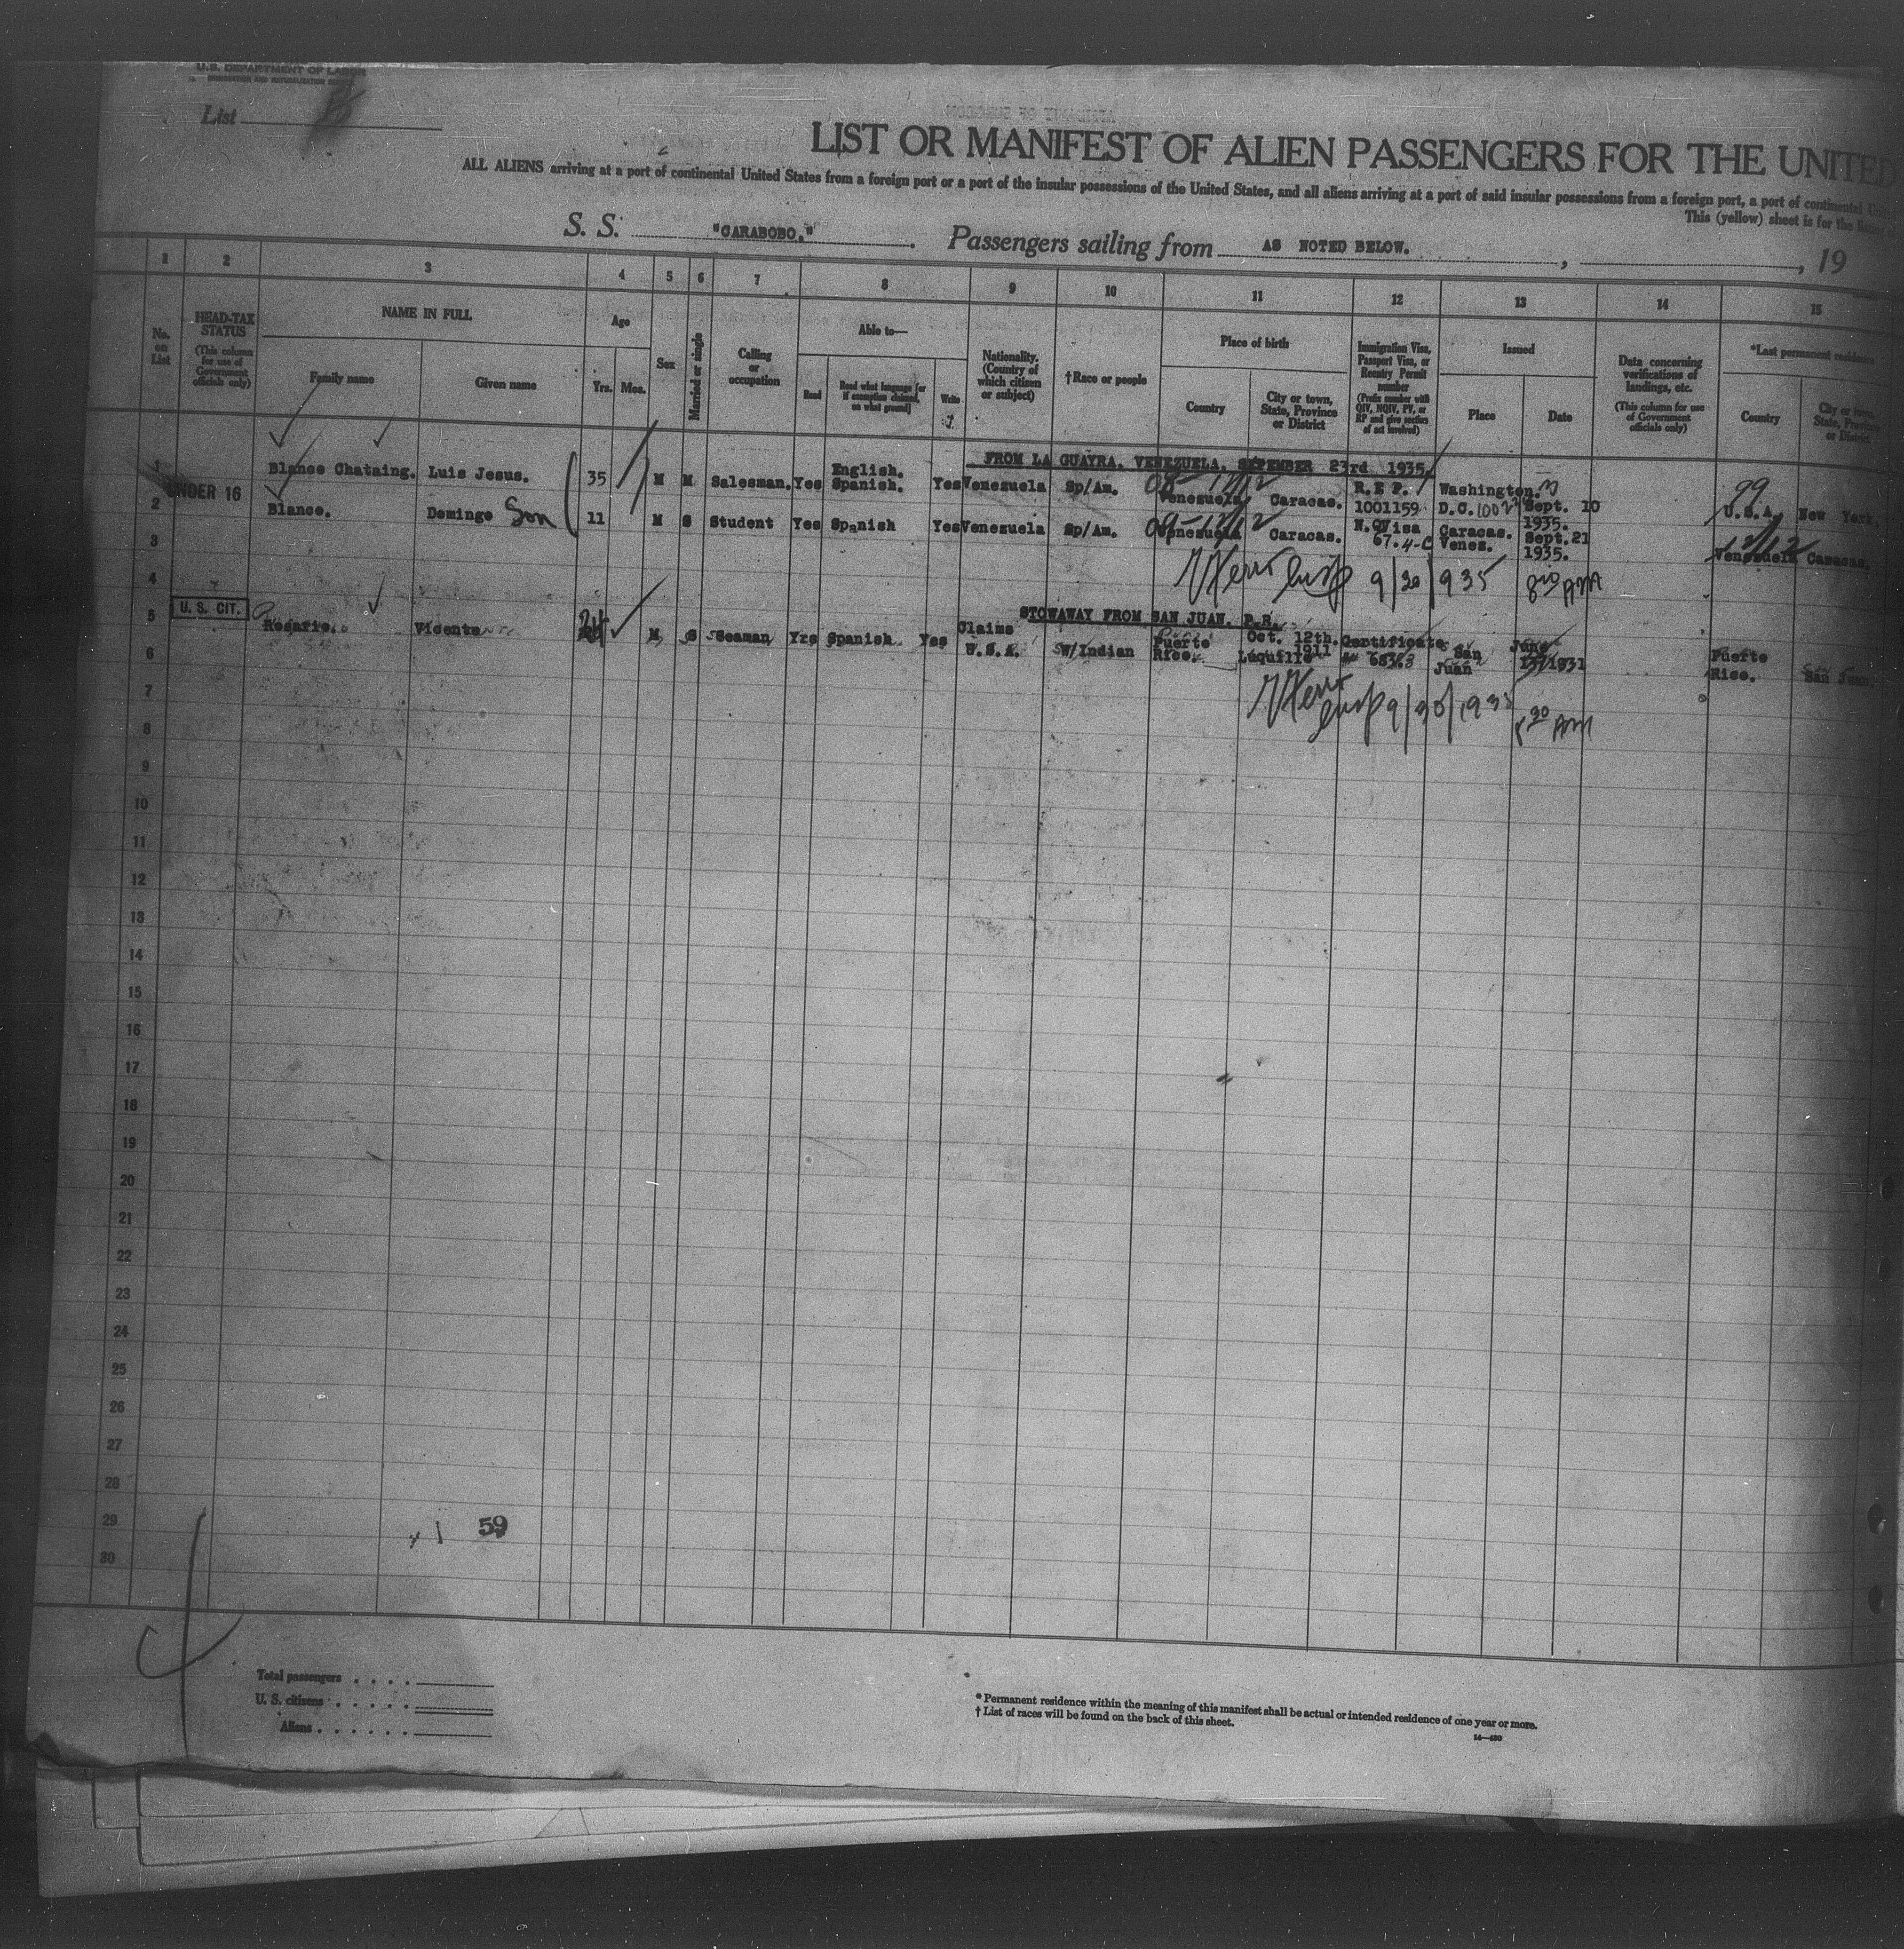 U.S. DEPARTMENT OF LABOR
IMMIGRATION AND NATURALIZATION SERVICE
List
LIST OR MANIFEST OF ALIEN PASSENGERS FOR THE UNITED
ALL ALIENS arriving at a port of continental United States from a foreign port or a port of the insular possessions of the United States, and all aliens arriving at a port of said insular possessions from a foreign port, a port of continental
This (yellow) sheet is for the
S. S. "CARABOBO." Passengers sailing from AS NOTED BELOW. , , 19
1 2 3 4 5 6 7 8 9 10 11 12 13 14 15
No. on List
HEAD-TAX STATUS
(This column for use of Government officials only)
NAME IN FULL
Family name
Given name
Age
Yrs. Mos.
Sex
Married or single
Calling or occupation
Able to—
Read
Read what language [or if exemption claimed, on what ground]
Write
Nationality. (Country of which citizen or subject)
†Race or people
Place of birth
Country
City or town, State, Province or District
Immigration Visa, Passport Visa, or Reentry Permit number
(Prefix number with QIV, NQIV, PV, or RP and give section of act involved)
Issued
Place
Date
Data concerning verifications of landings, etc.
(This column for use of Government officials only)
*Last permanent residence
Country
City or town, State, Province or District
FROM LA GUAYRA. VENEZUELA. SEPEMBER 23rd 1935.
1 Blanco Chataing. Luis Jesus. 35 M M Salesman. Yes English. Spanish. Yes Venezuela Sp/Am. Venezuela Caracas. R.E P. 1001159 Washington. D.C. Sept. 10 1935. U.S.A. New York.
UNDER 16
2 Blanco. Domingo Son 11 M S Student Yes Spanish Yes Venezuela Sp/Am. Venezuela Caracas. N.Q Visa 67. 4-C Caracas. Venez. Sept.21 1935. Venezuela Caracas.
3
9/30/935
4
STOWAWAY FROM SAN JUAN. P.R.
U. S. CIT.
5 Rosario. Vicente M S Seaman Yrs Spanish Yes Claims U.S.A. W/Indian Puerto Rico. Oct. 12th. 1911 Luquillo Certificate San Juan June 1931 Puerto Rico. San Juan.
6
7
8
9
10
11
12
13
14
15
16
17
18
19
20
21
22
23
24
25
26
27
28
29 59
30
Total passengers . . . .
U. S. citizens . . . . .
Aliens . . . . . .
* Permanent residence within the meaning of this manifest shall be actual or intended residence of one year or more.
† List of races will be found on the back of this sheet.
14—430